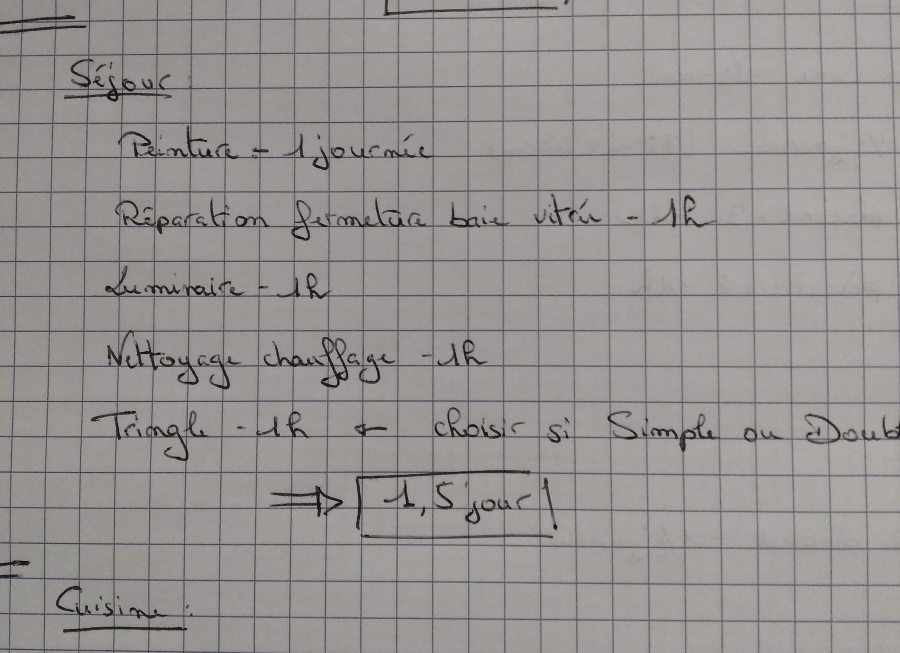 Séjour
Peinture - 1 journée
Réparation fermeture baie vitrée - 1h
Luminaire - 1h
Nettoyage chauffage - 1h
Tringle - 1h ← choisir si Simple ou Doubl
⇒ 1,5 jour
Cuisine :